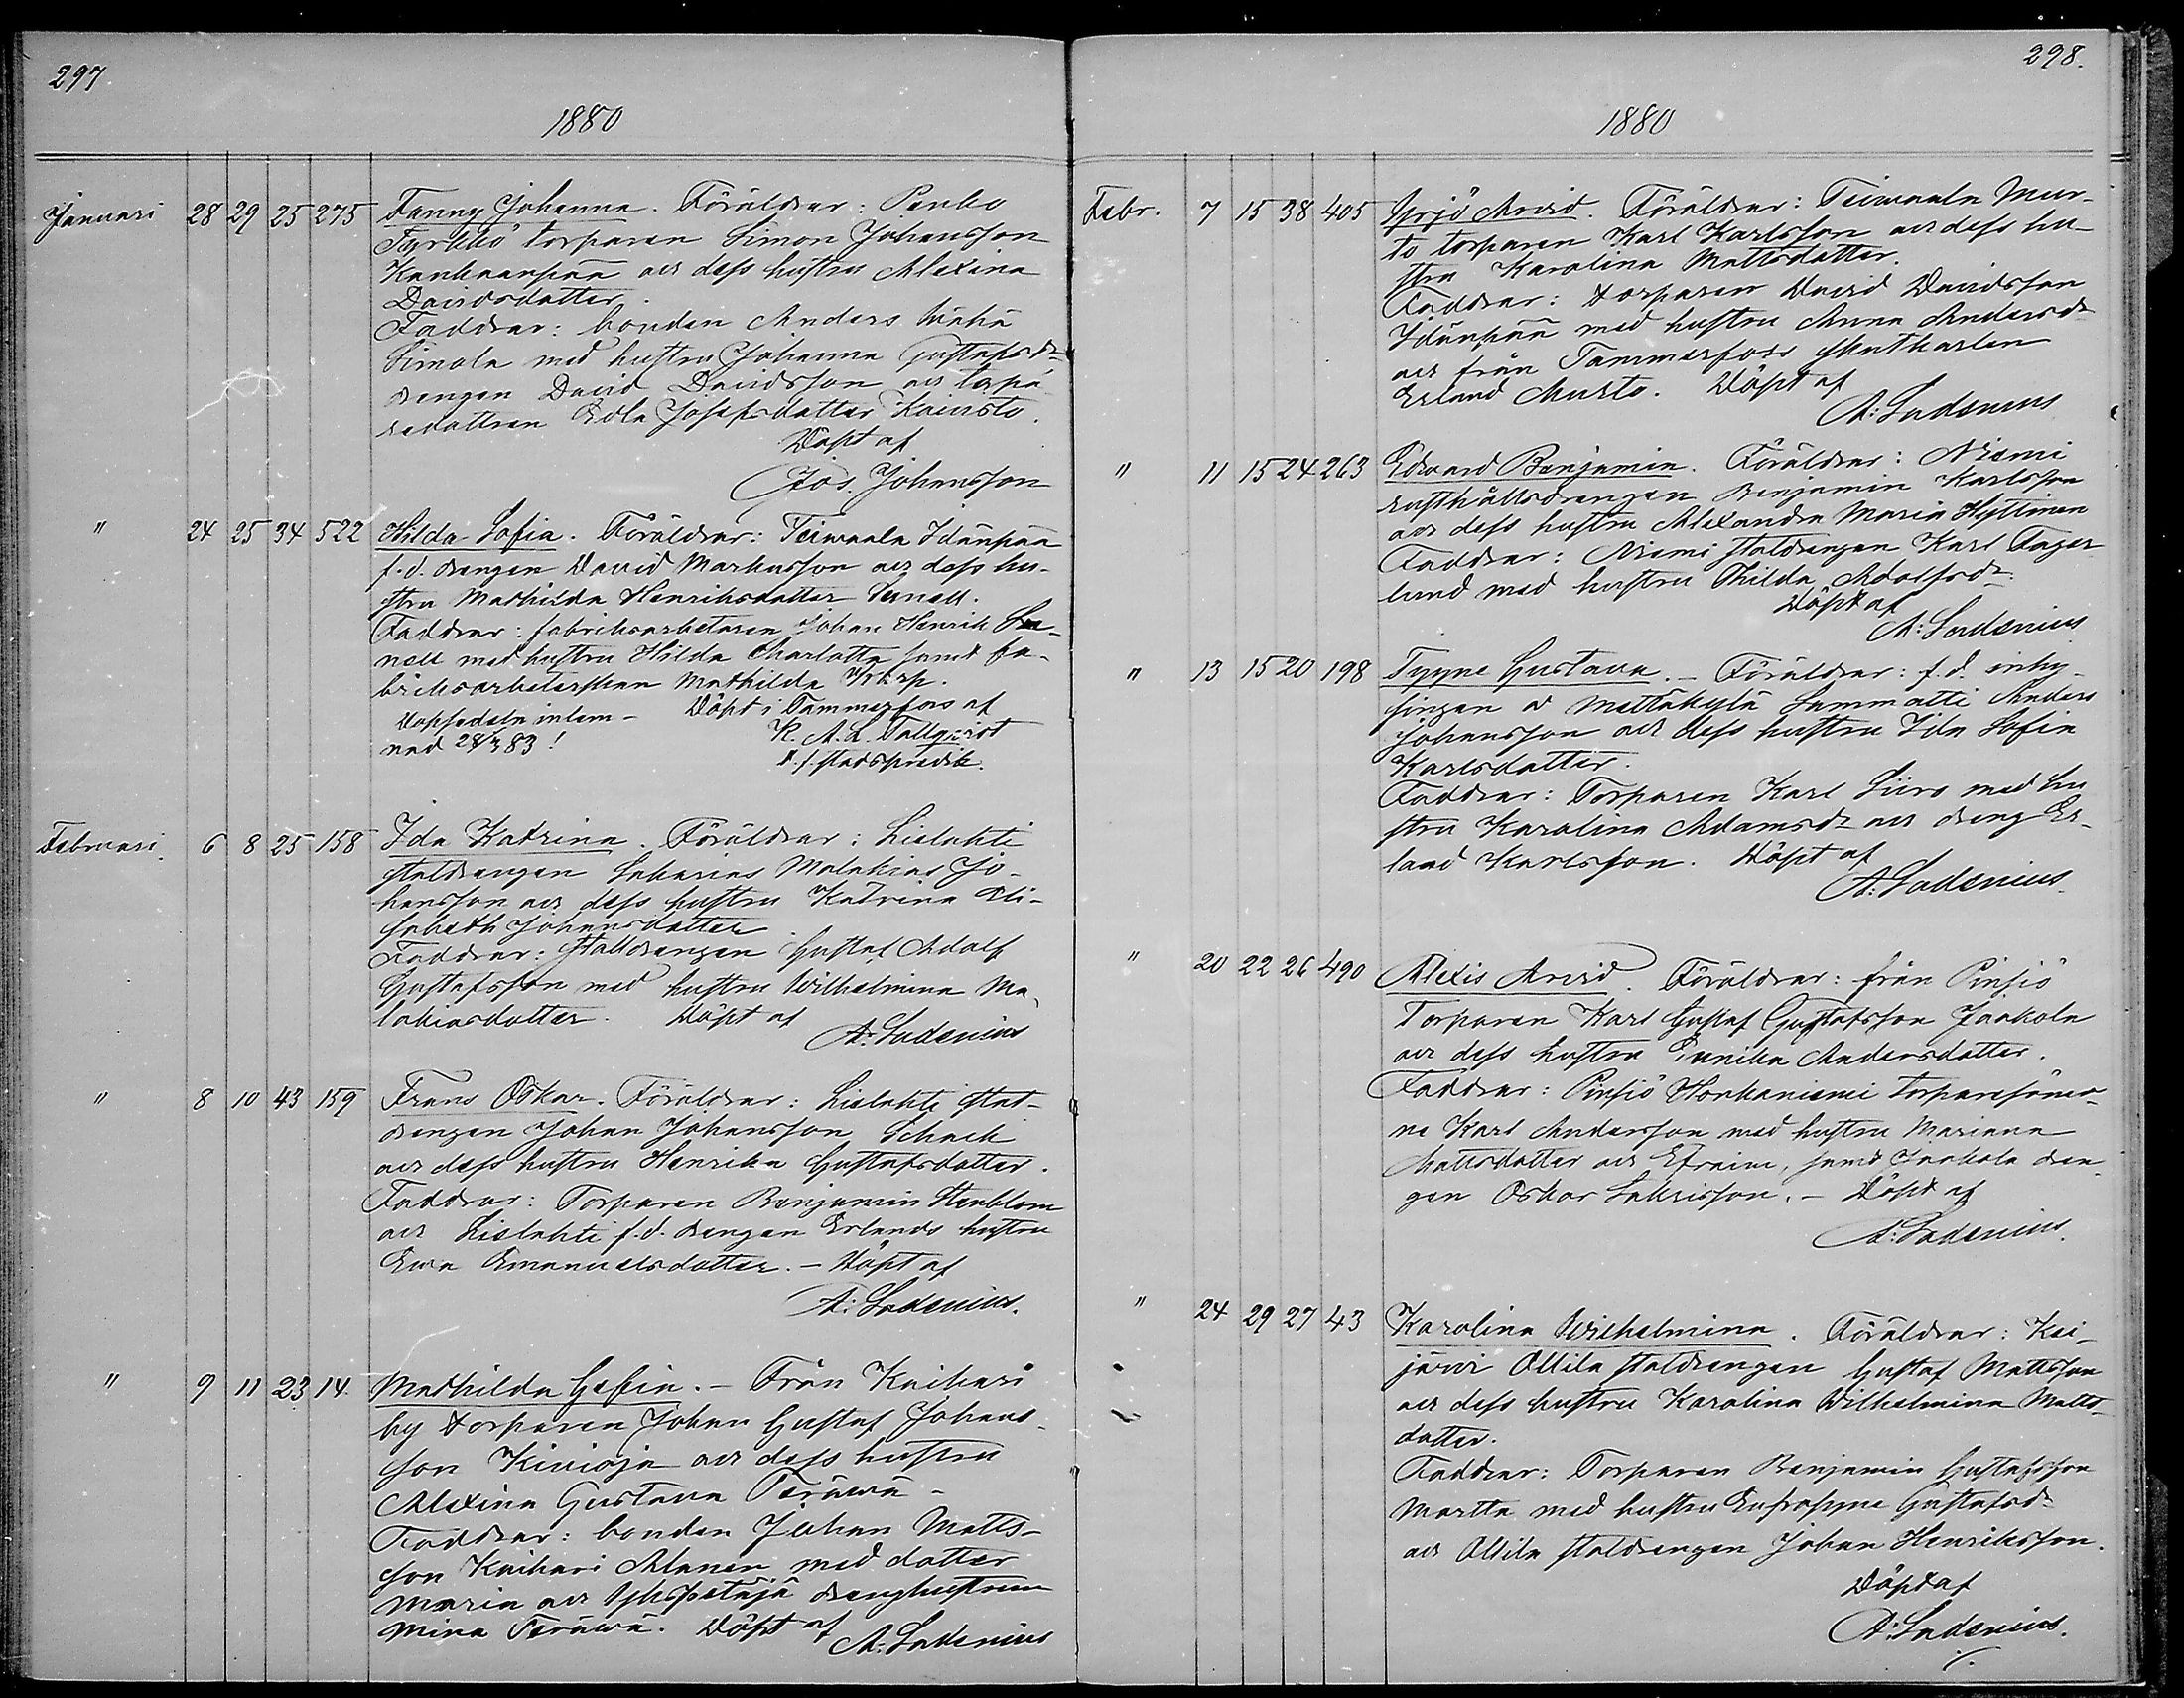 297
1880
Januari 28 29 25 275 Fanny Johanna. Föräldrar: Penho
Tyrkkö torparen Simon Johansson
Kankaanpää och dess hustru Alexina
Davidsdotter.
Faddrar: bonden Anders Vähä
Simola med hustru Johanna Gustafsdr
drengen David Davidsson och torpa-
redottren Edla Josefsdotter Koivisto.
Döpt af
Jos. Johansson
" 24 25 34 522 Hilda Sofia. Föräldrar: Teiwaala Idänpää
f.d. drengen David Markusson och dess hu-
stru Mathilda Henriksdotter Sunell.
Faddrar: fabriksarbetaren Johan Henrik Su-
nell med hustru Hilda Charlotta samt fa-
briksarbeterskan Mathilda
Dopsedeln inlem- Döpt i Tammerfors af
nad 28/3 83! K. A. L. Tallqvist
v./ stadspredik.
Februari. 6 8 25 158 Ida Katrina. Föräldrar: Lielahti
staldrengen Sakarias Malakias Jo-
hansson och dess hustru Katrina Eli-
sabeth Johansdotter
Faddrar: Stalldrengen Gustaf Adolf
Gustafsson med hustru Wilhelmina Ma-
lakiasdotter. Döpt af
A: Ladenius
" 8 10 43 159 Frans Oskar. Föräldrar: Lielahti stal-
drengen Johan Johansson Schack
och dess hustru Henrika Gustafsdotter.
Faddrar: Torparen Benjamin Stenblom
och Lielahti f.d. drengen Erlands hustru
Ewa Emanuelsdotter. – Döpt af
A: Ladenius.
" 9 11 23 14. Mathilda Sofia. – Från Kaihari
by torparen Johan Gustaf Johans-
son Kivioja och dess hustru
Alexina Gustava Teräwä –
Faddrar: bonden Johan Matts-
son Kaihari Alanen med dotter
Maria och Yhspetäjä drenghustrun
Mina Teräwä. Döpt af A: Ladenius
298.
1880
Febr. 7 15 38 405 Yrjö Arvid. Föräldrar: Teiwaala Mur-
to torparen Karl Karlsson och dess hu-
stru Karolina Mattsdotter.
Faddrar: torparen David Davidsson
Idänpää med hustru Anna Andersdr
och från Tammerfors
Erland Murto. Döpt af
A: Ladenius
" 11 15 24 263 Edvard Benjamin. Föräldrar: Niemi
rusthållsdrengen Benjamin Karlsson
och dess hustru Alexandra Maria Hyttinen
Faddrar: Niemi staldrengen Karl Fager-
lund med hustru Thilda Adolfsdr.
Döpt af
A: Ladenius
" 13 15 20 198 Tyyne Gustava. – Föräldrar: f.d. inhy-
singen å Mattakylä Lammatti Anders
Johansson och dess hustru Ida Sofia
Karlsdotter.
Faddrar: Torparen Karl Siiro med hu
stru Karolina Adamsdr och dreng Er-
land Karlsson. Döpt af
A: Ladenius.
" 20 22 26 490 Alexis Arvid. Föräldrar: från Pinsiö
Torparen Karl Gustaf Gustafsson Jaakola
och dess hustru Eunika Andersdotter.
Faddrar: Pinsiö Honkaniemi torparesöner-
ne Karl Andersson med hustru Mariana
Mattsdotter och Efraim, samt Jaakola dren-
gen Oskar Sakrisson. – Döpt af
A: Ladenius.
" 24 29 27 43 Karolina Wilhelmina. Föräldrar: Kai-
järvi Ollila staldrengen Gustaf Mattsson
och dess hustru Karolina Wilhelmina Matts-
dotter.
Faddrar: Torparen Benjamin Gustafsson
Martta med hustru Eufrosyne Gustafsdr
och Ollila staldrengen Johan Henriksson.
Döpt af
A: Ladenius.